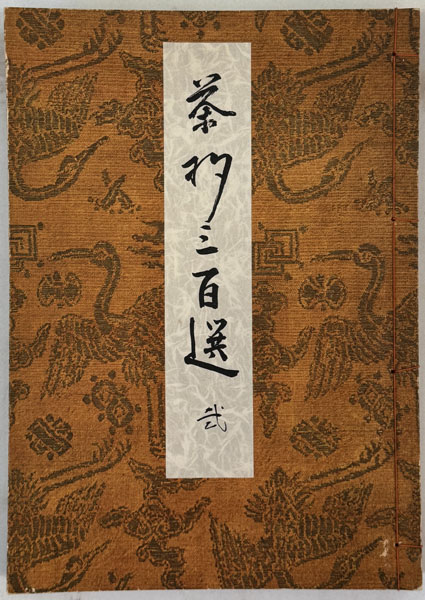 茶杓三百選
弐